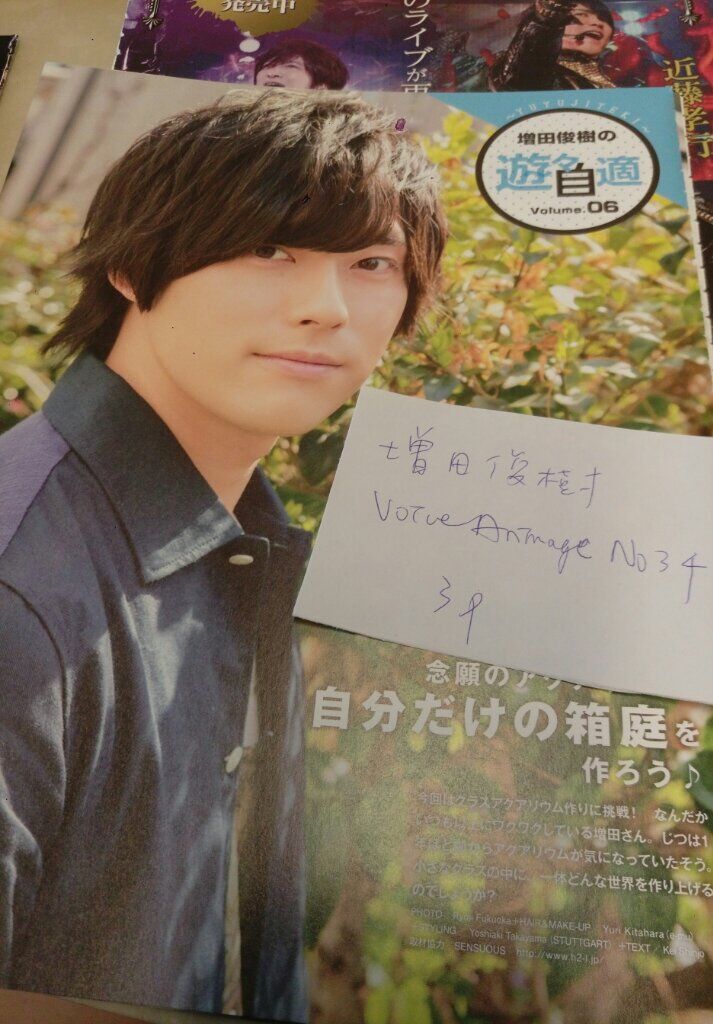 発売中
のライブが
近藤孝
~YUYUJITEKI~
増田俊樹の
遊々自適
Volume.06
増田俊樹
Voice Animage No 34
3p
念願のア
自分だけの箱庭を
作ろう♪
今回はグラスアクアリウム作りに挑戦! なんだか
いつも以上にワクワクしている増田さん。じつは1
年ほど前からアクアリウムが気になっていたそう。
小さなグラスの中に、一体どんな世界を作り上げる
のでしょうか?
PHOTO/Ryo Fukuoka+HAIR&MAKE-UP/Yuri Kitahara(e-mu)
+STYLING/Yoshiaki Takayama(STUTTGART)+TEXT/Kei Shinjo
取材協力/SENSUOUS http://www.h2-l.jp/